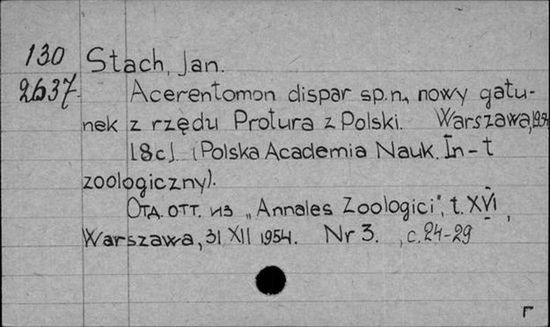 130 Stach, Jan.
2637. Acerentomon dispar sp.n., nowy gatu-
nek z rzędu Protura z Polski. Warszawa, 1954
18c]. (Polska Academia Nauk. In-t
zoologiczny).
Отд. отт. из „Annales Zoologici", t. XVI,
Warszawa, 31 XII 1954. Nr 3. , c. 24-29
г